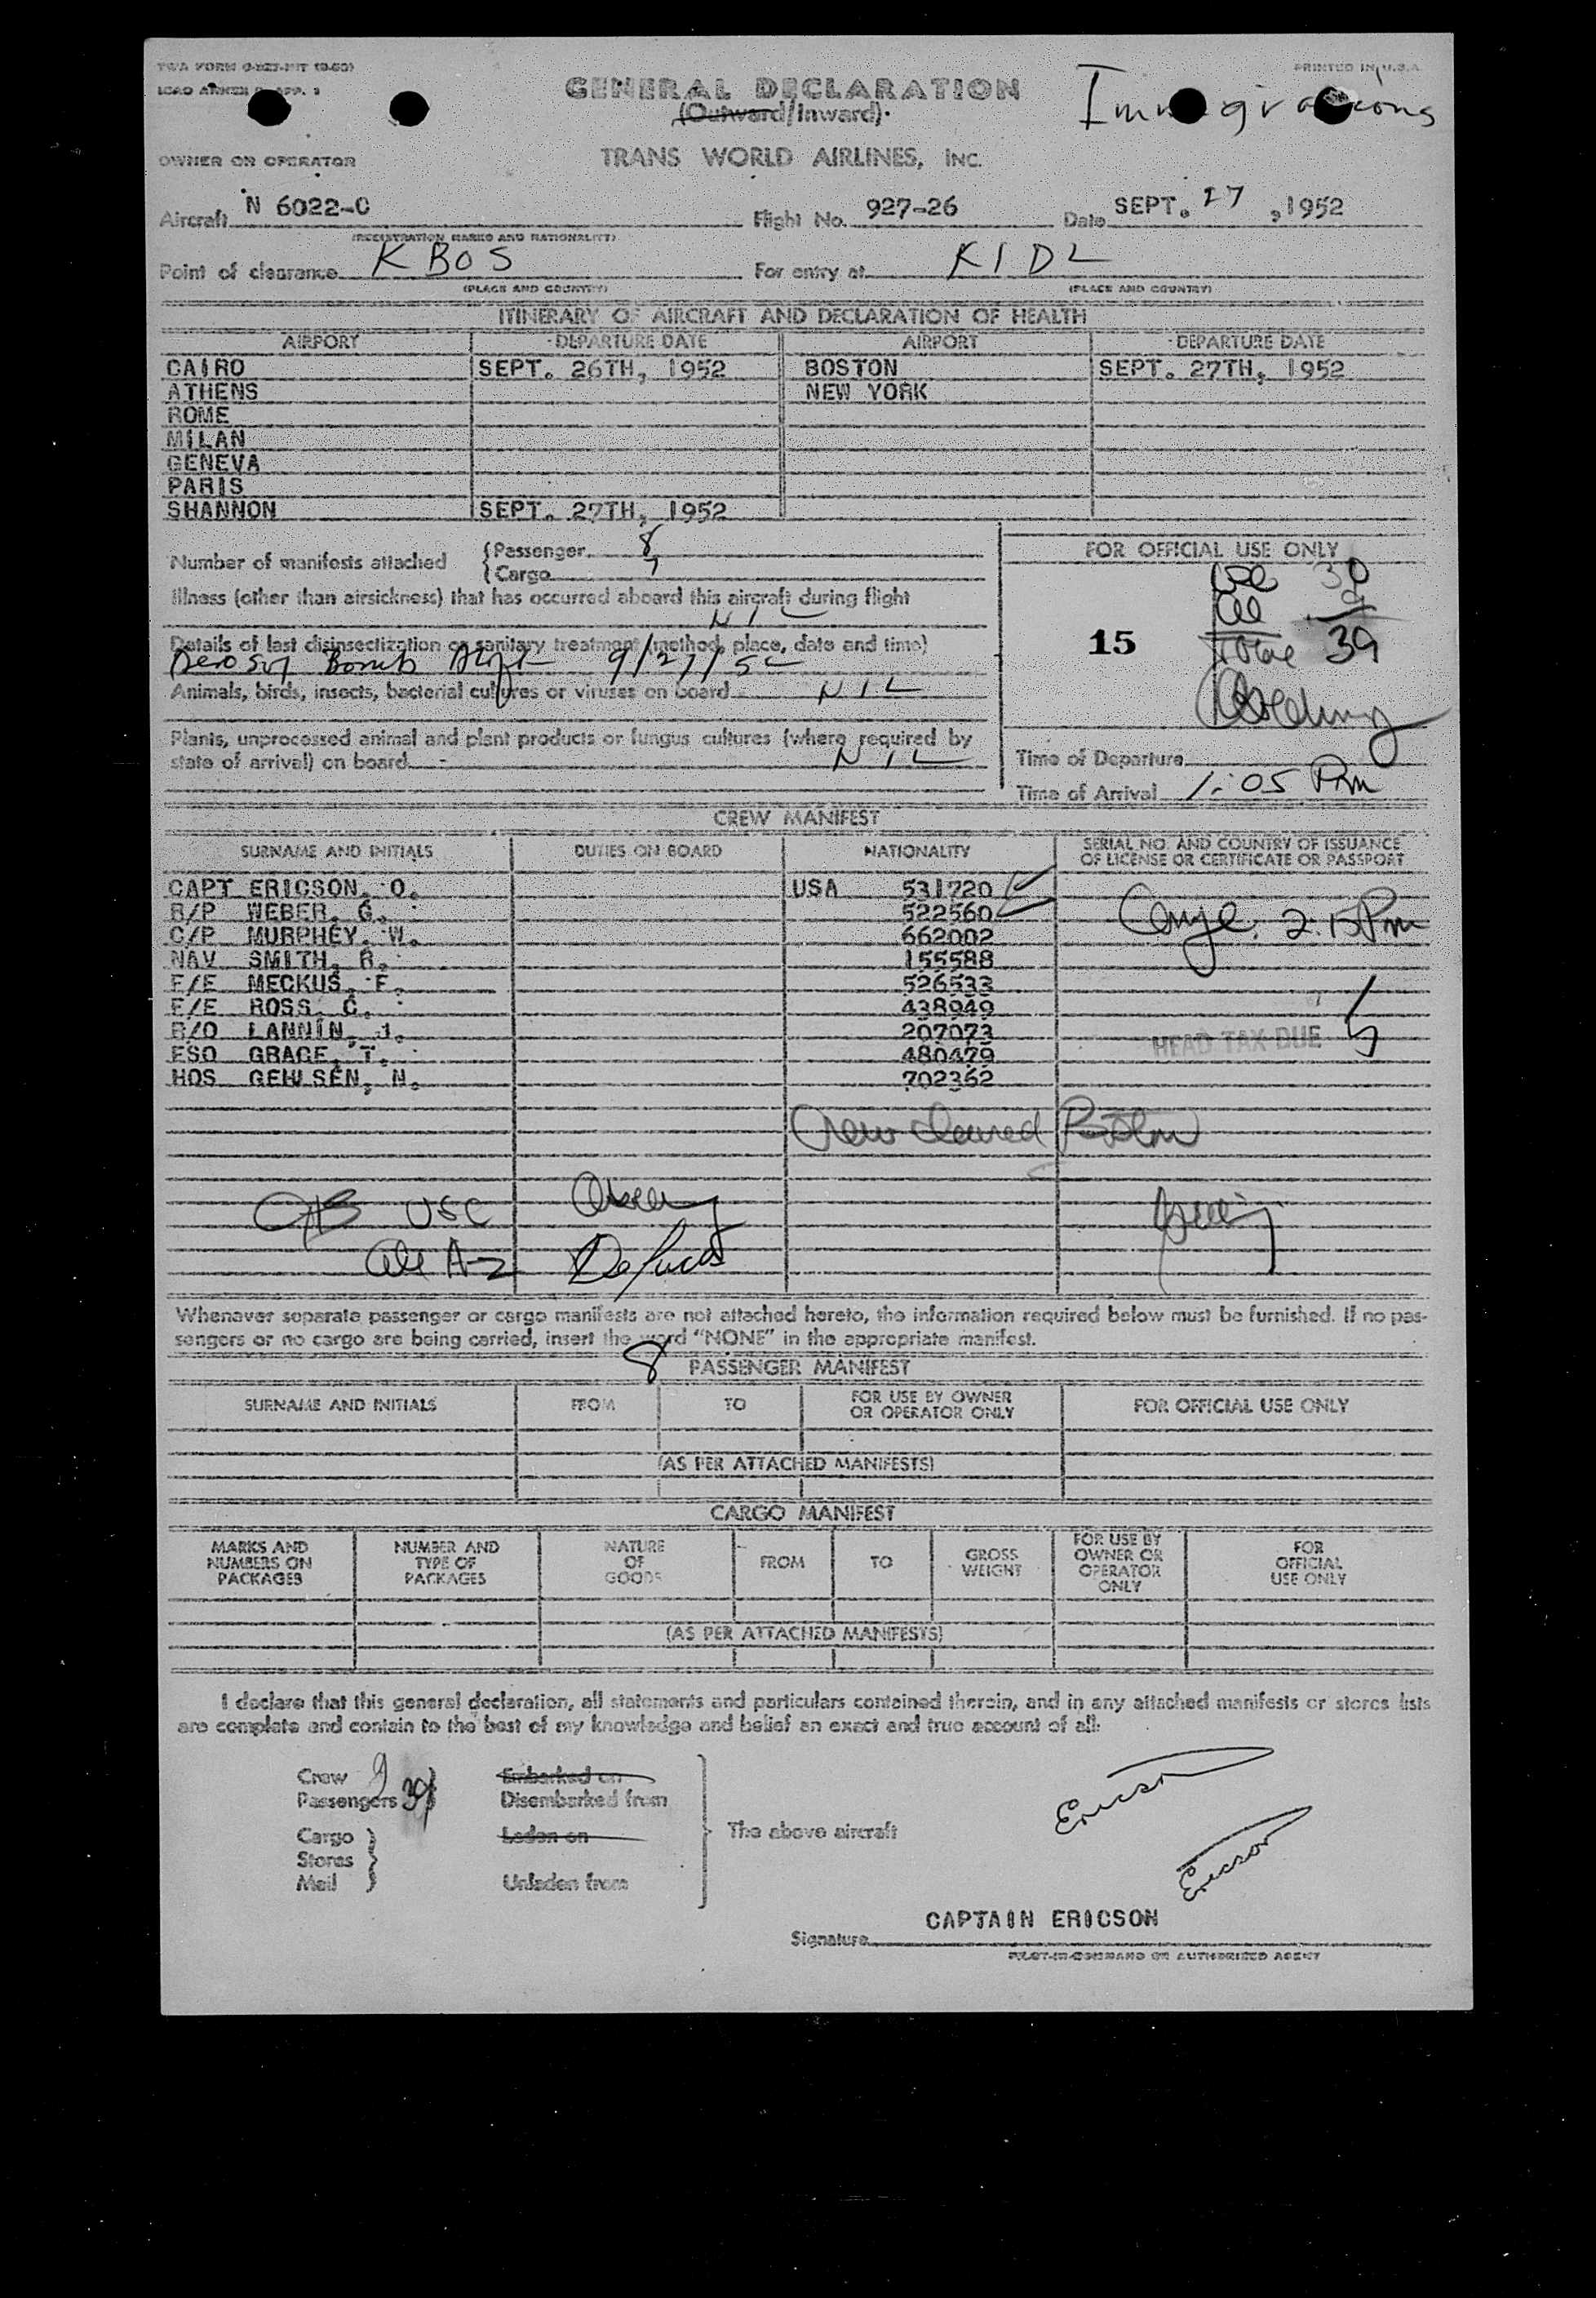 TWA FORM
PRINTED IN U.S.A.
ICAO ANNEX 9, APP. 1
GENERAL DECLARATION
(Outward/Inward)
Immigrations
OWNER OR OPERATOR TRANS WORLD AIRLINES, INC.
Aircraft N 6022-C Flight No. 927-26 Date SEPT. 27, 1952
(REGISTRATION MARKS AND NATIONALITY)
Point of clearance KBOS For entry at KIDL
(PLACE AND COUNTRY) (PLACE AND COUNTRY)
ITINERARY OF AIRCRAFT AND DECLARATION OF HEALTH
AIRPORT DEPARTURE DATE AIRPORT DEPARTURE DATE
CAIRO SEPT. 26TH, 1952 BOSTON SEPT. 27TH, 1952
ATHENS NEW YORK
ROME
MILAN
GENEVA
PARIS
SHANNON SEPT. 27TH, 1952
Number of manifests attached { Passenger 8
{ Cargo 7
FOR OFFICIAL USE ONLY
USC 30
Al 9
15 Total 39
Illness (other than airsickness) that has occurred aboard this aircraft during flight
NIL
Details of last disinsectization or sanitary treatment (method, place, date and time)
Aerosol Bomb 9/27/52
Animals, birds, insects, bacterial cultures or viruses on board NIL
Plants, unprocessed animal and plant products or fungus cultures (where required by
state of arrival) on board NIL
Time of Departure
Time of Arrival 1:05 Pm
CREW MANIFEST
SURNAME AND INITIALS DUTIES ON BOARD NATIONALITY SERIAL NO. AND COUNTRY OF ISSUANCE
OF LICENSE OR CERTIFICATE OR PASSPORT
CAPT ERICSON, O. USA 531720
R/P WEBER, G. 522560
C/P MURPHEY, W. 662002
2:15 Pm
NAV SMITH, R. 155588
F/E MECKUS, F. 526533
F/E ROSS, C. 438949
R/O LANNIN, J. 207073
HEAD TAX DUE
FSO GRACE, T. 480479
HOS GEHLSEN, N. 702362
Crew cleared Boston
USC
Al A-2
Whenever separate passenger or cargo manifests are not attached hereto, the information required below must be furnished. If no pas-
sengers or no cargo are being carried, insert the word "NONE" in the appropriate manifest.
8 PASSENGER MANIFEST
SURNAME AND INITIALS FROM TO FOR USE BY OWNER
OR OPERATOR ONLY FOR OFFICIAL USE ONLY
(AS PER ATTACHED MANIFESTS)
CARGO MANIFEST
MARKS AND
NUMBERS ON
PACKAGES NUMBER AND
TYPE OF
PACKAGES NATURE
OF
GOODS FROM TO GROSS
WEIGHT FOR USE BY
OWNER OR
OPERATOR
ONLY FOR
OFFICIAL
USE ONLY
(AS PER ATTACHED MANIFESTS)
I declare that this general declaration, all statements and particulars contained therein, and in any attached manifests or stores lists
are complete and contain to the best of my knowledge and belief an exact and true account of all:
Crew 9 Embarked on
Passengers 39 Disembarked from
Cargo Laden on The above aircraft
Stores
Mail Unladen from
Ericson
Ericson
CAPTAIN ERICSON
Signature
PILOT-IN-COMMAND OR AUTHORIZED AGENT